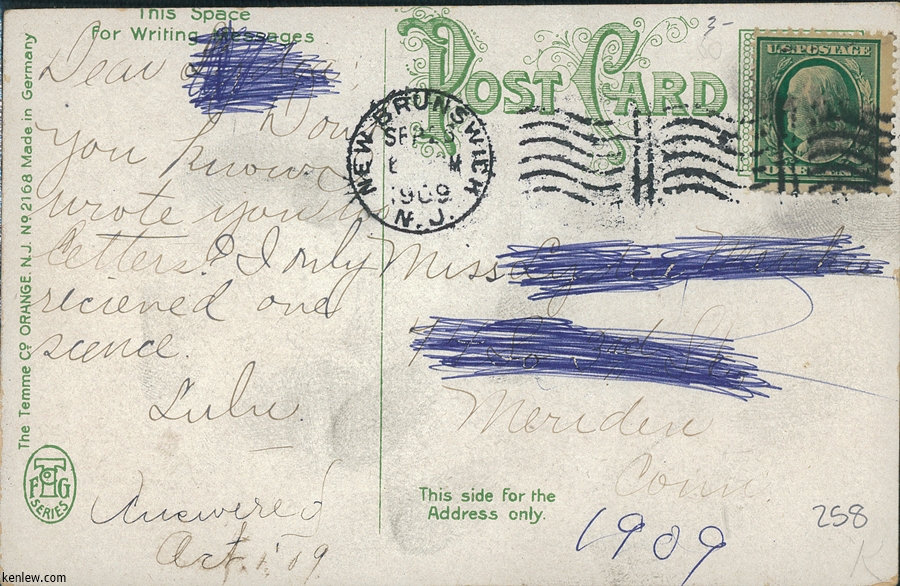 This Space
for Writing Messages
Dear
Don't
you know I
wrote you two
letters? I only
recieved one
scence.
Lulu.
Answered
Oct. 1. '09
The Temme Co ORANGE. N.J. No 2168 Made in Germany
TFG
SERIES
POST CARD
3-
U.S. POSTAGE
ONE CENT
NEW BRUNSWICK
SEP
M
1909
N.J.
Miss
Meriden
Conn
This side for the
Address only.
1909
258
K
kenlew.com